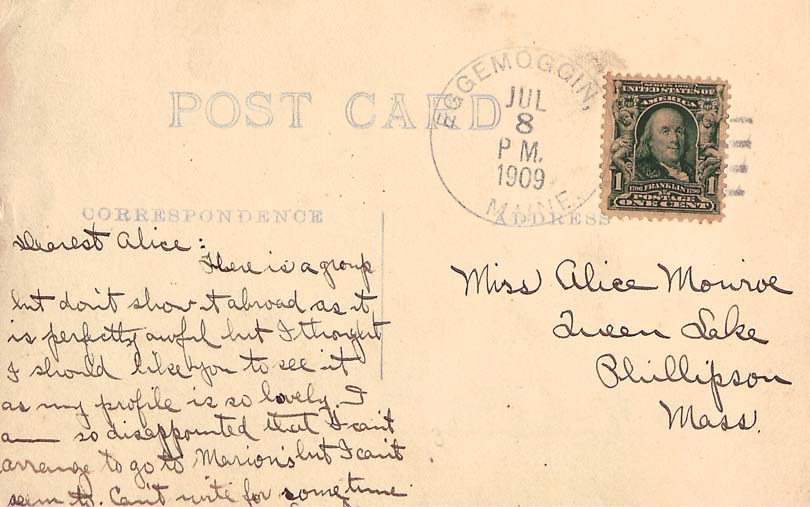 POST CARD
EGGEMOGGIN,
JUL
8
P M.
1909
MAINE.
SERIES 1902
UNITED STATES OF
AMERICA
1706 FRANKLIN 1790
1 POSTAGE 1
ONE CENT
CORRESPONDENCE
ADDRESS
Dearest Alice:
Here is a group
but don't show it abroad as it
is perfectly awful but I thought
I should like you to see it
as my profile is so lovely. I
am so disappointed that I can't
arrange to go to Marion's but I can't
seem to. Can't write for some time
Miss Alice Monroe
Queen Lake
Phillipson
Mass.